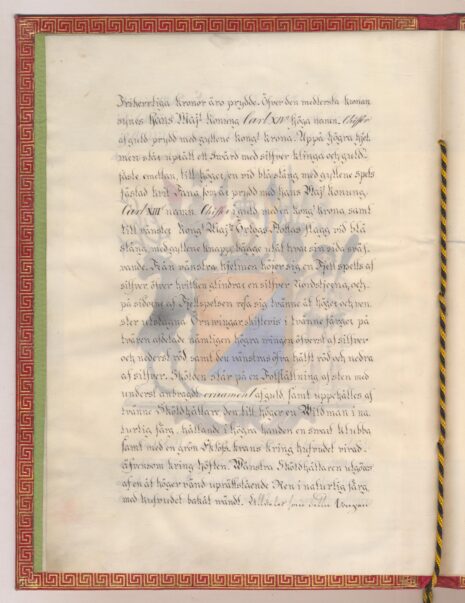 Friherrliga kronor äro prydde. Öfver den medlersta kronan
synes Hans Maj:ts Konung Carl XIV höga namn. Chiffer
af guld prydd med gyllene kongl. krona. Uppå högra hjel
men står uprätt ett Svärd med silfver klinga och guld-
fäste emellan, till höger, en vid blå stång med gyllene spets
fästad hvit Fana som är prydd med Hans Maj:ts Konung
Carl XIII namn Chiffer i guld med en kongl. krona samt
till vänster Kongl. Maj:ts Örlogs Flottas flagg vid blå
stång med gyllene knapp, bägge utåt hvar sin sida sväf-
vande. Från vänstra hjelmen höjer sig en Fjell spetts af
silfver öfver hvilken glindrar en silfver Nordstjerna, och
på sidorne af Fjellspetsen resa sig tvänne åt höger och ven-
ster utslagna Örnvingar skiftevis i tvänne färger på
tvären afdelade nämligen högra vingen öfverst af silfver
och nederst röd samt den vänstras öfra hälft röd och nedra
af silfver. Skölden står på en Fotställning af sten med
underst anbragdt ornament af guld samt uppehålles af
tvänne Sköldhållare den till höger en Vildman i na-
turlig färg, hållande i högra handen en smalt klubba
samt med en grön Eklöfs krans kring hufvudet virad
äfvensom kring höften. Wänstra Sköldhållaren utgöres
af en åt höger vänd uprättstående Ren i naturlig färg
med hufvudet bakåt vändt. Alldeles som detta Wapen